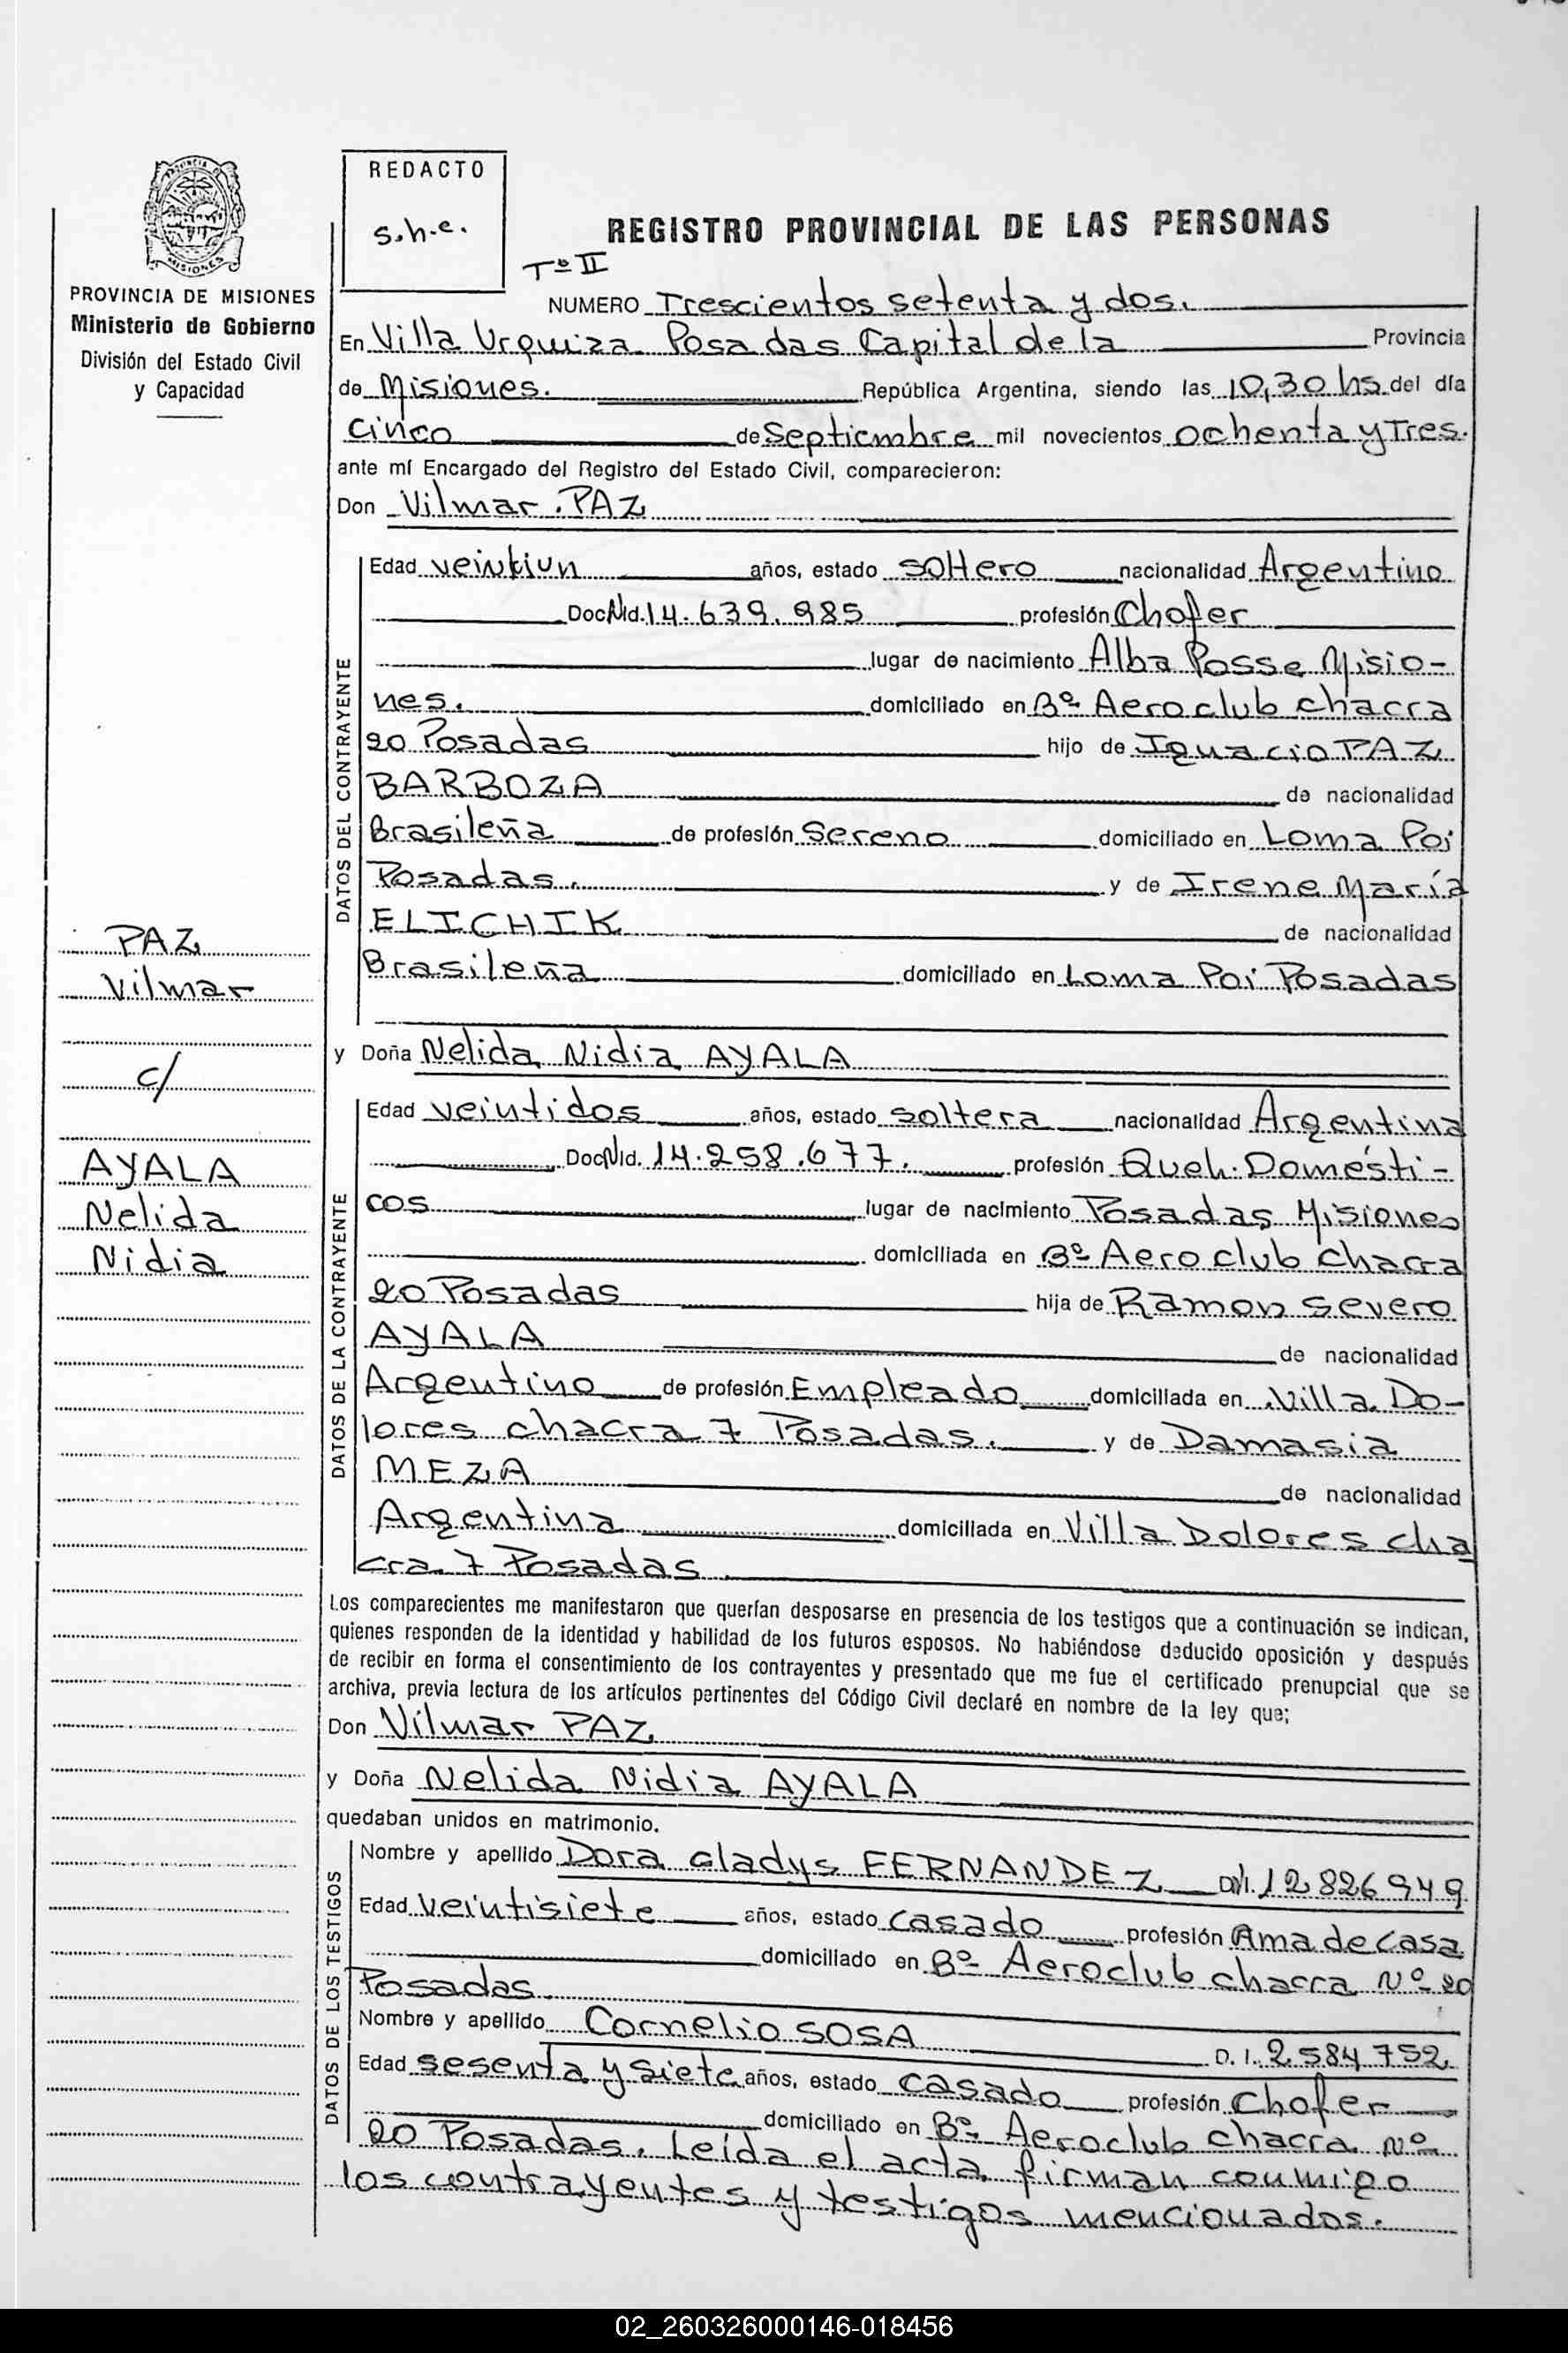 REDACTO
s.h.e.
PROVINCIA DE MISIONES
Ministerio de Gobierno
División del Estado Civil
y Capacidad
REGISTRO PROVINCIAL DE LAS PERSONAS
Tº II
NUMERO Trescientos setenta y dos.
En Villa Urquiza Posadas Capital de la Provincia
de Misiones. República Argentina, siendo las 10,30 hs. del día
cinco de Septiembre mil novecientos ochenta y Tres.
ante mí Encargado del Registro del Estado Civil, comparecieron:
Don Vilmar. PAZ
DATOS DEL CONTRAYENTE
Edad veintiun años, estado soltero nacionalidad Argentino
Doc NId. 14.639.985 profesión Chofer
lugar de nacimiento Alba Posse Misio-
nes. domiciliado en Bº Aeroclub chacra
20 Posadas hijo de Ignacio PAZ
BARBOZA de nacionalidad
Brasileña de profesión Sereno domiciliado en Loma Poi
Posadas. y de Irene María
ELICHIK de nacionalidad
Brasileña domiciliado en Loma Poi Posadas
PAZ
Vilmar
c/
AYALA
Nelida
Nidia
y Doña Nelida Nidia AYALA
DATOS DE LA CONTRAYENTE
Edad veintidos años, estado soltera nacionalidad Argentina
Doc NId. 14.258.677. profesión Queh. Domésti-
cos lugar de nacimiento Posadas Misiones
domiciliada en Bº Aeroclub chacra
20 Posadas hija de Ramon Severo
AYALA de nacionalidad
Argentino de profesión Empleado domiciliada en Villa Do-
lores chacra 7 Posadas. y de Damasia
MEZA de nacionalidad
Argentina domiciliada en Villa Dolores cha
cra 7 Posadas.
Los comparecientes me manifestaron que querían desposarse en presencia de los testigos que a continuación se indican,
quienes responden de la identidad y habilidad de los futuros esposos. No habiéndose deducido oposición y después
de recibir en forma el consentimiento de los contrayentes y presentado que me fue el certificado prenupcial que se
archiva, previa lectura de los artículos pertinentes del Código Civil declaré en nombre de la ley que;
Don Vilmar PAZ
y Doña Nelida Nidia AYALA
quedaban unidos en matrimonio.
DATOS DE LOS TESTIGOS
Nombre y apellido Dora Gladys FERNANDEZ DNI. 12 826 949
Edad veintisiete años, estado casado profesión Ama de casa
domiciliado en Bº Aeroclub chacra Nº 20
Posadas.
Nombre y apellido Cornelio SOSA D.I. 2.584 752
Edad sesenta y siete años, estado casado profesión Chofer
domiciliado en Bº Aeroclub chacra Nº
20 Posadas. Leída el acta firman conmigo
los contrayentes y testigos mencionados.
02_260326000146-018456